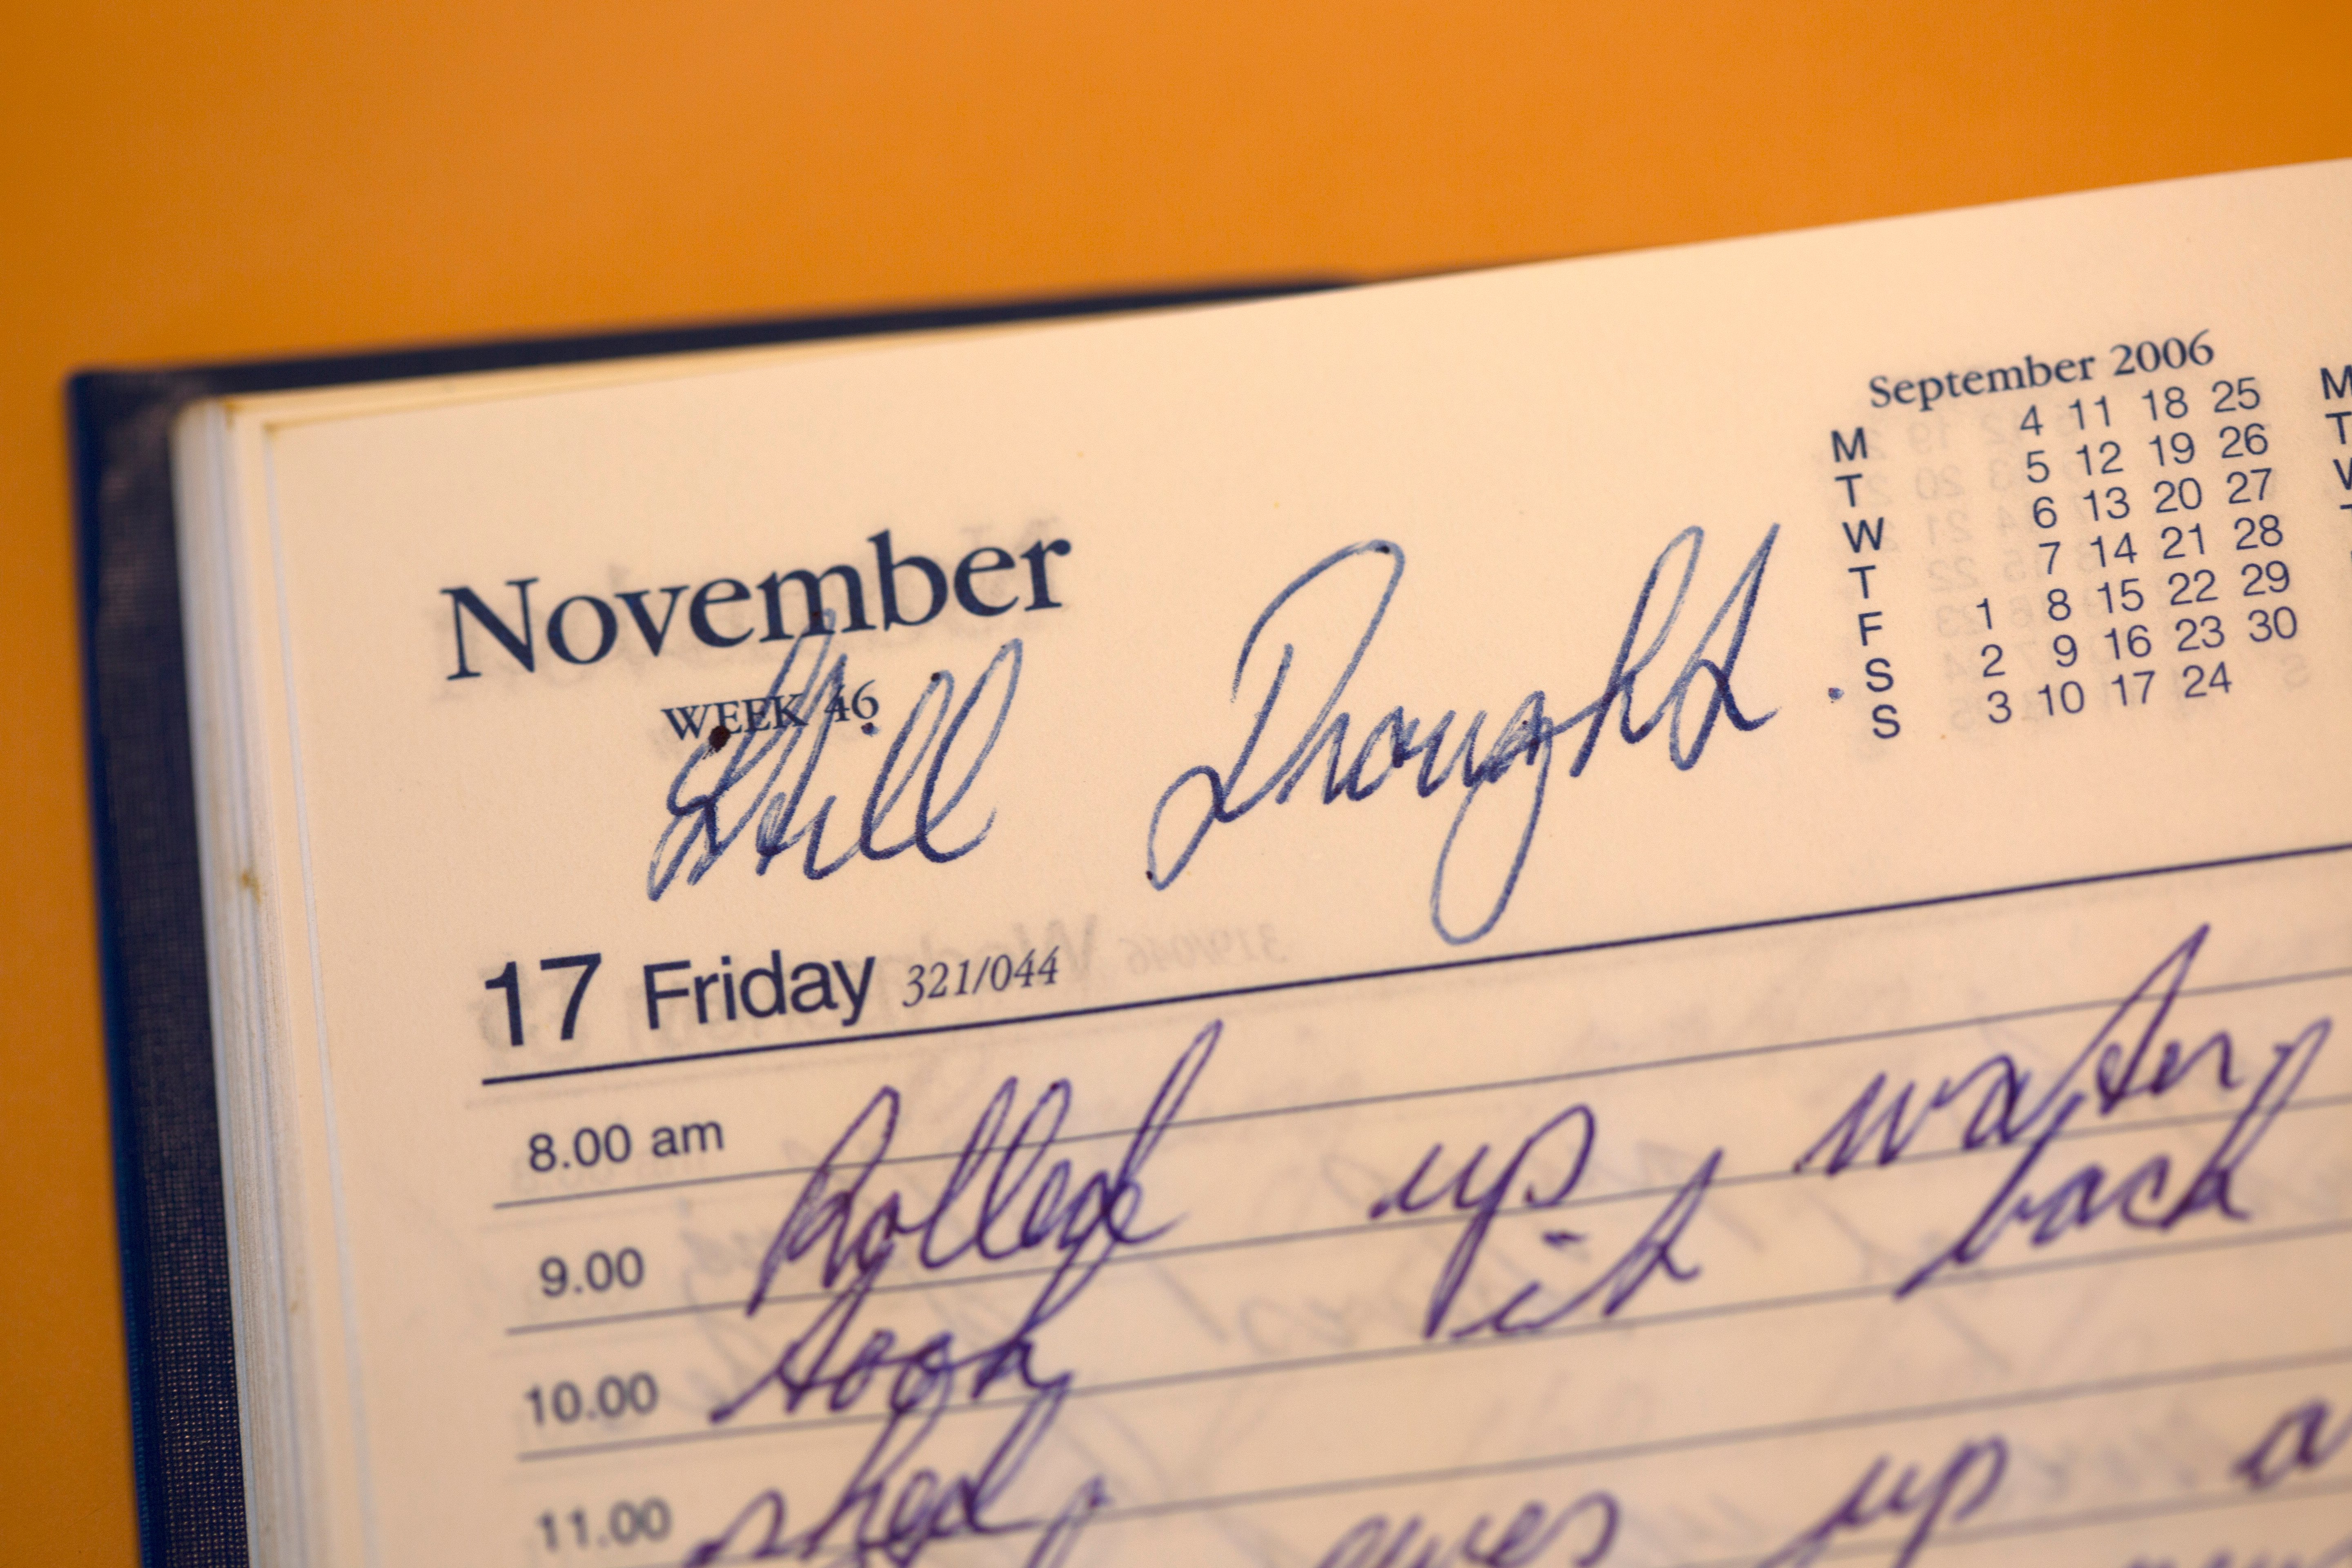 September 2006
M 4 11 18 25 M
T 5 12 19 26 T
W 6 13 20 27 W
T 7 14 21 28 T
F 1 8 15 22 29
S 2 9 16 23 30
S 3 10 17 24
November
WEEK 46
Still Drought.
17 Friday 321/044
8.00 am
Rolled up water
9.00
took it back
10.00
shed
11.00
ewes up a